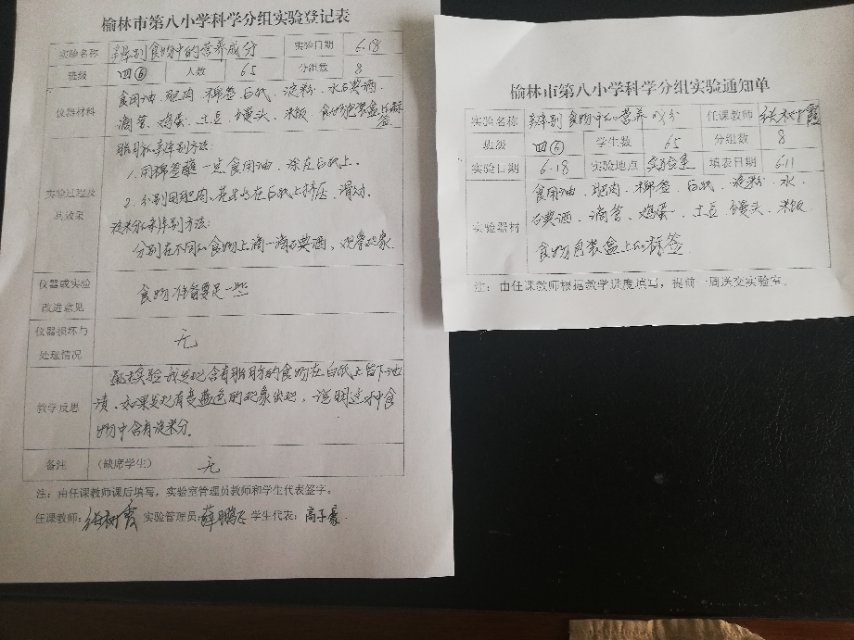 榆林市第八小学科学分组实验登记表
实验名称 辨别食物中的营养成分 实验日期 6.18
班级 四⑥ 人数 65 分组数 8
仪器材料
食用油、肥肉、棉签、白纸、淀粉、水、碘酒、
滴管、鸡蛋、土豆、馒头、米饭、食物包装盒上的标签
实验过程及其效果
脂肪的辨别方法:
1.用棉签蘸一点食用油,涂在白纸上。
2.分别用肥肉、花生在白纸上挤压、滑动。
淀粉的辨别方法:
分别在不同的食物上滴一滴碘酒,观察现象。
仪器或实验改进意见 食物准备要足一些
仪器损坏与处理情况 无
教学反思
通过实验我发现含有脂肪的食物在白纸上留下油
渍,如果发现有变蓝色的现象出现,说明这种食
物中含有淀粉。
备注 (缺席学生) 无
注:由任课教师课后填写,实验室管理员教师和学生代表签字。
任课教师: 树霞 实验管理员: 薛鹏 学生代表: 高子豪
榆林市第八小学科学分组实验通知单
实验名称 辨别食物中的营养成分 任课教师 树霞
班级 四⑥ 学生数 65 分组数 8
实验日期 6.18 实验地点 实验室 填表日期 6.11
实验器材
食用油、肥肉、棉签、白纸、淀粉、水、
碘酒、滴管、鸡蛋、土豆、馒头、米饭、
食物包装盒上的标签
注:由任课教师根据教学进度填写,提前一周送交实验室。